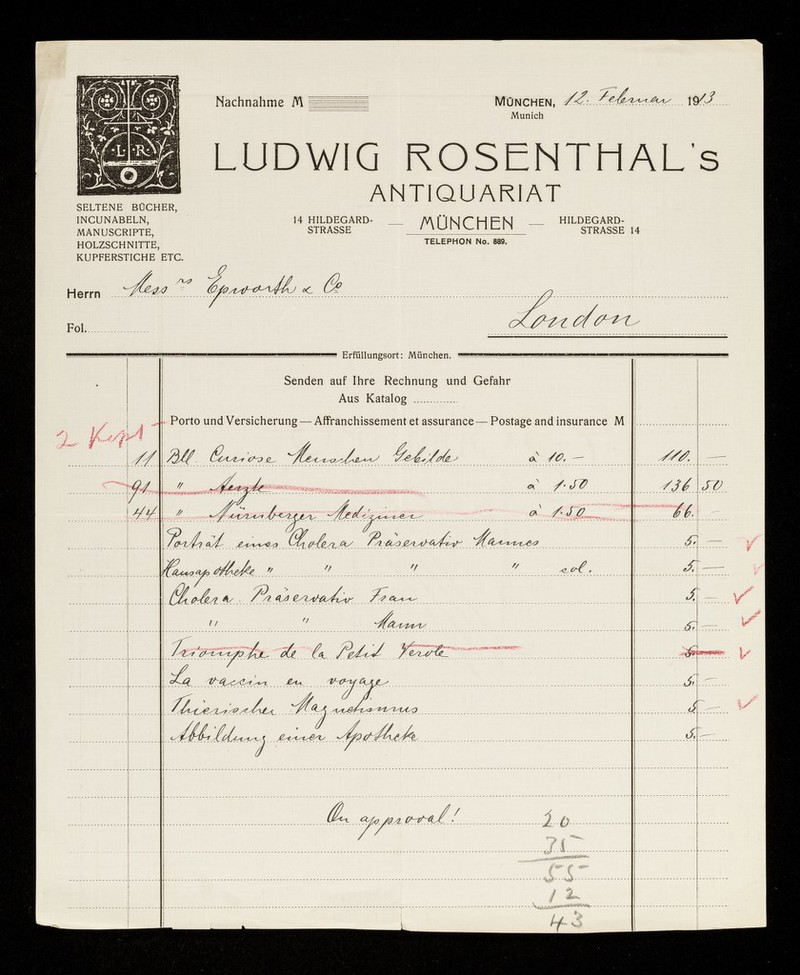 Nachnahme M
MÜNCHEN, 12. Februar 1913
Munich
L. R.
LUDWIG ROSENTHAL's
ANTIQUARIAT
SELTENE BÜCHER,
INCUNABELN,
MANUSCRIPTE,
HOLZSCHNITTE,
KUPFERSTICHE ETC.
14 HILDEGARD-STRASSE — MÜNCHEN — HILDEGARD-STRASSE 14
TELEPHON No. 889.
Herrn Mess rs Epworth & Co
Fol. London
Erfüllungsort: München.
Senden auf Ihre Rechnung und Gefahr
Aus Katalog
Porto und Versicherung — Affranchissement et assurance — Postage and insurance M
2
11 Bll. Curiose Menschen Gebilde à 10.— 110. —
91 " Aerzte à 1.50 136 50
44 " Nürnberger Mediziner à 1.50 66. —
Porträt eines Cholera Präservativ Mannes 5. —
Hausapotheke " " " " col. 5. —
Cholera Präservativ Frau 5. —
" " Mann 5. —
Triomphe de la Petit Verole 5. —
La vaccin en voyage 5. —
Thierischer Magnetismus 5. —
Abbildung einer Apotheke 5. —
On approval! 20
35
55
12
43